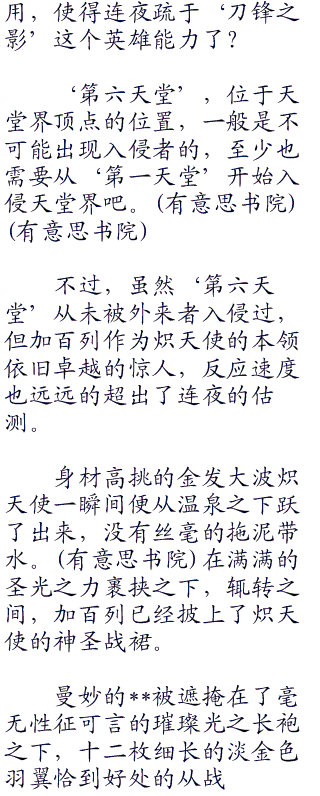 用，使得连夜疏于‘刀锋之
影’这个英雄能力了？
‘第六天堂’，位于天
堂界顶点的位置，一般是不
可能出现入侵者的，至少也
需要从‘第一天堂’开始入
侵天堂界吧。(有意思书院)
(有意思书院)
不过，虽然‘第六天
堂’从未被外来者入侵过，
但加百列作为炽天使的本领
依旧卓越的惊人，反应速度
也远远的超出了连夜的估
测。
身材高挑的金发大波炽
天使一瞬间便从温泉之下跃
了出来，没有丝毫的拖泥带
水。(有意思书院)在满满的
圣光之力裹挟之下，辄转之
间，加百列已经披上了炽天
使的神圣战裙。
曼妙的**被遮掩在了毫
无性征可言的璀璨光之长袍
之下，十二枚细长的淡金色
羽翼恰到好处的从战